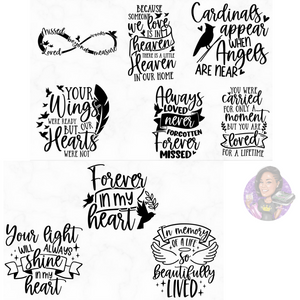 Missed
Loved
BECAUSE
SOMEONE
we love
IS IN
heaven
THERE IS A LITTLE
Heaven
IN OUR HOME
Cardinals
appear
WHEN
Angels
ARE NEAR
YOUR
Wings
WERE READY BUT OUR
Hearts
WERE NOT
Always
LOVED
never
FORGOTTEN
Forever
MISSED
YOU WERE
CARRIED
FOR ONLY A
moment
BUT YOU ARE
loved
FOR A LIFETIME
Forever
in my
heart
Your light
WILL ALWAYS
shine
in my
heart
In memory
OF A LIFE
So
Beautifully
LIVED